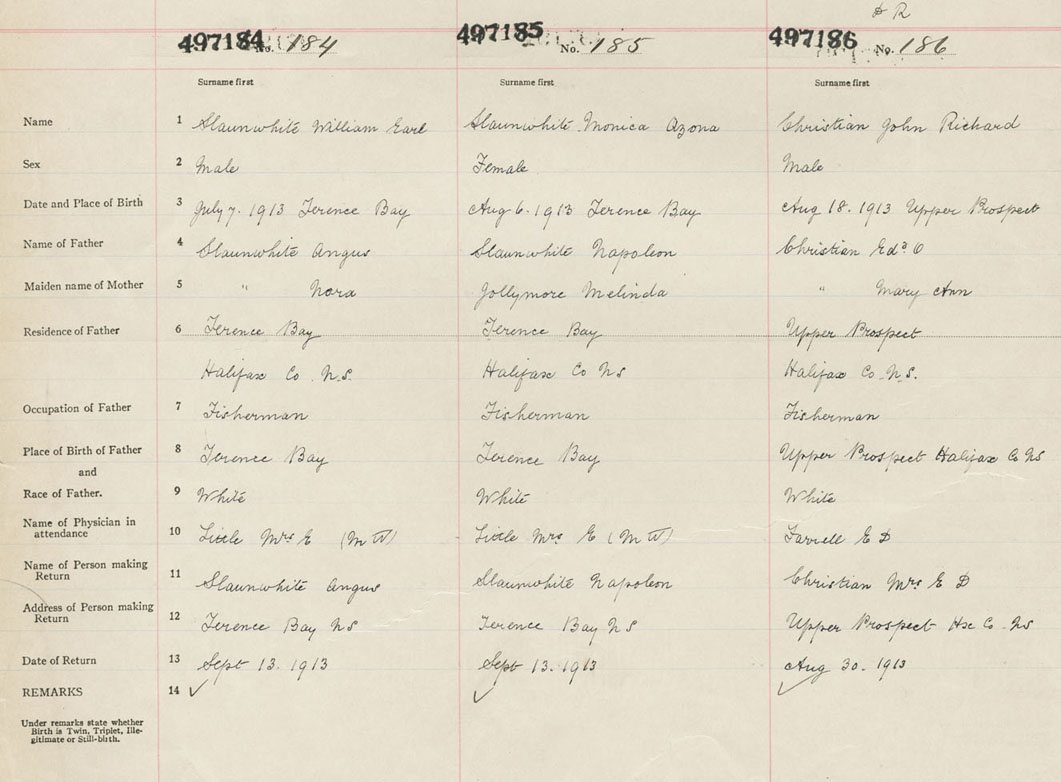 H R
497184 No. 184 497185 No. 185 497186 No. 186
Surname first Surname first Surname first
Name 1 Slaunwhite William Earl Slaunwhite Monica Azona Christian John Richard
Sex 2 Male Female Male
Date and Place of Birth 3 July 7. 1913 Terence Bay Aug 6. 1913 Terence Bay Aug 18. 1913 Upper Prospect
Name of Father 4 Slaunwhite Angus Slaunwhite Napoleon Christian Edd
Maiden name of Mother 5 " Nora Jollymore Melinda " Mary Ann
Residence of Father 6 Terence Bay Terence Bay Upper Prospect
Halifax Co. N.S. Halifax Co NS Halifax Co. N.S.
Occupation of Father 7 Fisherman Fisherman Fisherman
Place of Birth of Father 8 Terence Bay Terence Bay Upper Prospect Halifax Co NS
and
Race of Father. 9 White White White
Name of Physician in
attendance 10 Little Mrs E (M W) Little Mrs E (M W) Farrell E D
Name of Person making
Return 11 Slaunwhite Angus Slaunwhite Napoleon Christian Mrs E D
Address of Person making
Return 12 Terence Bay NS Terence Bay NS Upper Prospect Hx Co. NS
Date of Return 13 Sept 13. 1913 Sept 13. 1913 Aug 30. 1913
REMARKS 14 ✓ ✓ ✓
Under remarks state whether
Birth is Twin, Triplet, Ille-
gitimate or Still-birth.